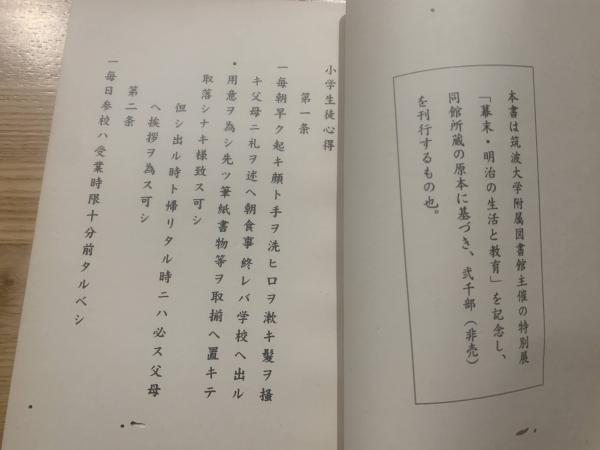 本書は筑波大学附属図書館主催の特別展
「幕末・明治の生活と教育」を記念し、
同館所蔵の原本に基づき、弐千部（非売）
を刊行するもの也。
小学生徒心得
第一条
一毎朝早ク起キ顔ト手ヲ洗ヒロヲ漱キ髪ヲ掻
キ父母ニ礼ヲ述ヘ朝食事終レバ学校ヘ出ル
用意ヲ為シ先ツ筆紙書物等ヲ取揃ヘ置キテ
取落シナキ様致ス可シ
但シ出ル時ト帰リタル時ニハ必ス父母
ヘ挨拶ヲ為ス可シ
第二条
一毎日参校ハ受業時限十分前タルベシ